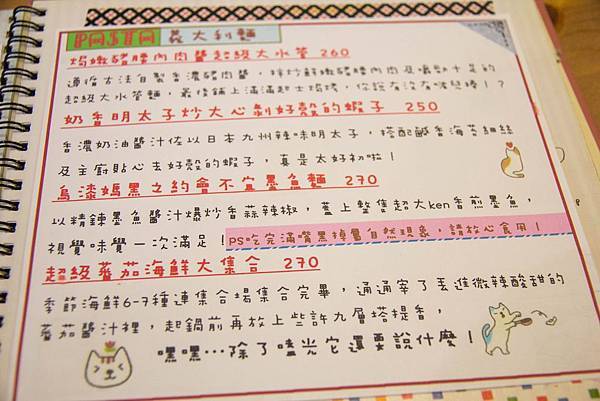 PASTA 義大利麵
焗嫩豬腰內肉醬超級大水管 260
遵循古法自製香濃豬肉醬,拌炒鮮嫩豬腰內肉及嚼勁十足的
超級大水管麵,最後鋪上滿滿起士焗烤,你說有沒有波兒棒!?
奶香明太子炒大心剝好殼的蝦子 250
香濃奶油醬汁佐以日本九州辣味明太子,搭配鹹香海苔細絲
及主廚貼心去好殼的蝦子,真是太好初啦!
烏漆媽黑之約會不宜墨魚麵 270
以精鍊墨魚醬汁爆炒香蒜辣椒,蓋上整隻超大ken香煎墨魚,
視覺味覺一次滿足!PS吃完滿嘴黑掉屬自然現象,請放心食用!
超級蕃茄海鮮大集合 270
季節海鮮6-7種連集合場集合完畢,通通宰了丟進微辣酸甜的
蕃茄醬汁裡,起鍋前再放上些許九層塔提香,
嘿嘿…除了嗑光它還要說什麼!